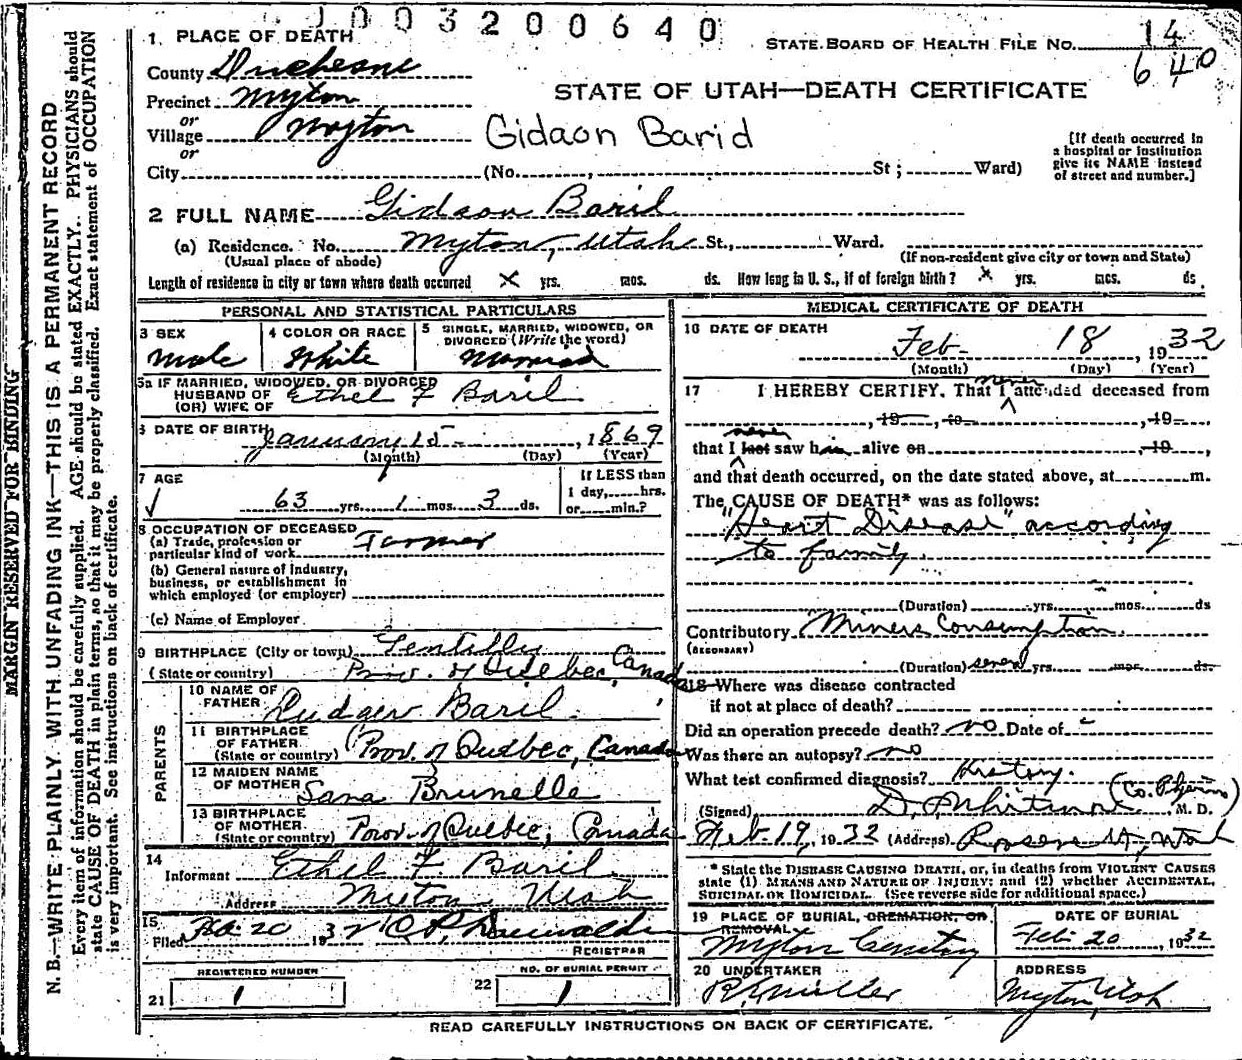 1003200640
1. PLACE OF DEATH
STATE BOARD OF HEALTH FILE NO. 14
640
County Duchesne
STATE OF UTAH—DEATH CERTIFICATE
Precinct Myton
or
Village Myton
Gidaon Barid
or
[If death occurred in a hospital or institution give its NAME instead of street and number.]
City (No. , St ; Ward)
2 FULL NAME Gidaon Baril
(a) Residence. No. Myton, Utah St., Ward.
(Usual place of abode) (If non-resident give city or town and State)
Length of residence in city or town where death occurred X yrs. mos. ds. How long in U. S., if of foreign birth? X yrs. mos. ds
PERSONAL AND STATISTICAL PARTICULARS
3 SEX
Male
4 COLOR OR RACE
White
5 SINGLE, MARRIED, WIDOWED, OR DIVORCED (Write the word)
Married
5a IF MARRIED, WIDOWED, OR DIVORCED
HUSBAND OF Ethel F Baril
(OR) WIFE OF
6 DATE OF BIRTH January 15 , 1869
(Month) (Day) (Year)
7 AGE
63 yrs. 1 mos. 3 ds.
If LESS than
1 day, hrs.
or min.?
8 OCCUPATION OF DECEASED
(a) Trade, profession or
particular kind of work Farmer
(b) General nature of industry,
business, or establishment in
which employed (or employer)
(c) Name of Employer
9 BIRTHPLACE (City or town) Gentilly
(State or country) Prov. of Quebec, Canada
PARENTS
10 NAME OF
FATHER Ludger Baril
11 BIRTHPLACE
OF FATHER
(State or country) Prov. of Quebec, Canada
12 MAIDEN NAME
OF MOTHER Sara Brunelle
13 BIRTHPLACE
OF MOTHER
(State or country) Prov. of Quebec, Canada
14
Informant Ethel F. Baril
Address Myton Utah
15
Filed Feb 20 1932
REGISTRAR
REGISTERED NUMBER
21 1
NO. OF BURIAL PERMIT
22 1
MEDICAL CERTIFICATE OF DEATH
16 DATE OF DEATH
Feb 18, 1932
(Month) (Day) (Year)
17 I HEREBY CERTIFY, That I never attended deceased from
, 19 , to , 19
that I last never saw him alive on , 19 ,
and that death occurred, on the date stated above, at m.
The CAUSE OF DEATH* was as follows:
"Heart Disease" according
to family.
(Duration) yrs. mos. ds
Contributory Miners Consumption
(SECONDARY)
(Duration) seven yrs. mos. ds.
18 Where was disease contracted
if not at place of death?
Did an operation precede death? no Date of -
Was there an autopsy? no
What test confirmed diagnosis? History.
(Signed) D. Whitmore M. D.
Feb. 19, 1932 (Address) Roosevelt, Utah
* State the DISEASE CAUSING DEATH, or, in deaths from VIOLENT CAUSES
state (1) MEANS AND NATURE OF INJURY; and (2) whether ACCIDENTAL,
SUICIDAL OR HOMICIDAL. (See reverse side for additional space.)
19 PLACE OF BURIAL, CREMATION, OR
REMOVAL
Myton Cemetery
DATE OF BURIAL
Feb 20, 1932
20 UNDERTAKER
Miller
ADDRESS
Myton, Utah
READ CAREFULLY INSTRUCTIONS ON BACK OF CERTIFICATE.
MARGIN RESERVED FOR BINDING
N. B.—WRITE PLAINLY, WITH UNFADING INK—THIS IS A PERMANENT RECORD
Every item of information should be carefully supplied. AGE should be stated EXACTLY. PHYSICIANS should
state CAUSE OF DEATH in plain terms, so that it may be properly classified. Exact statement of OCCUPATION
is very important. See instructions on back of certificate.